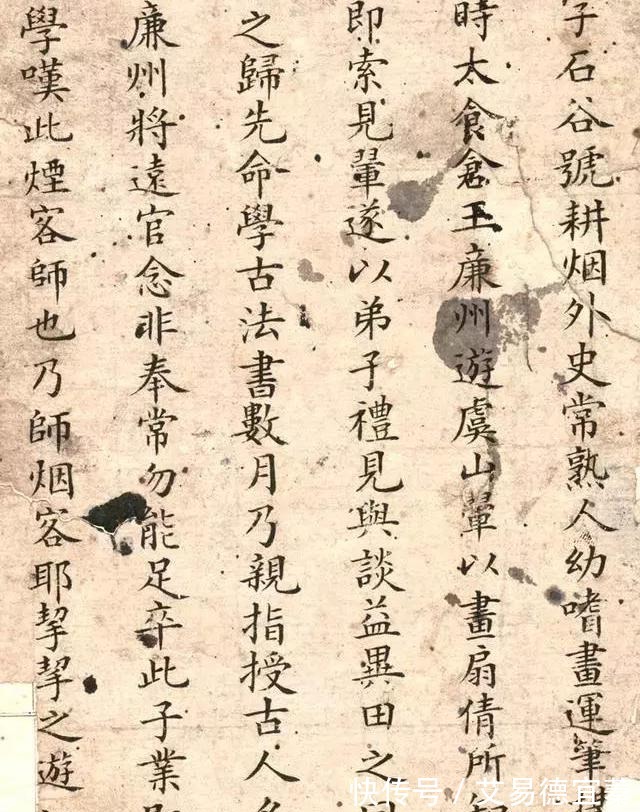 字石谷號耕烟外史常熟人幼嗜畫運筆
時太食倉王廉州遊虞山翬以畫扇倩所
即索見翬遂以弟子禮見與談益異田之
之歸先命學古法書數月乃親指授古人
廉州將遠官念非奉常勿能足卒此子業
學嘆此煙客師也乃師烟客耶挈挈之遊
快传号 / 艾易德宜